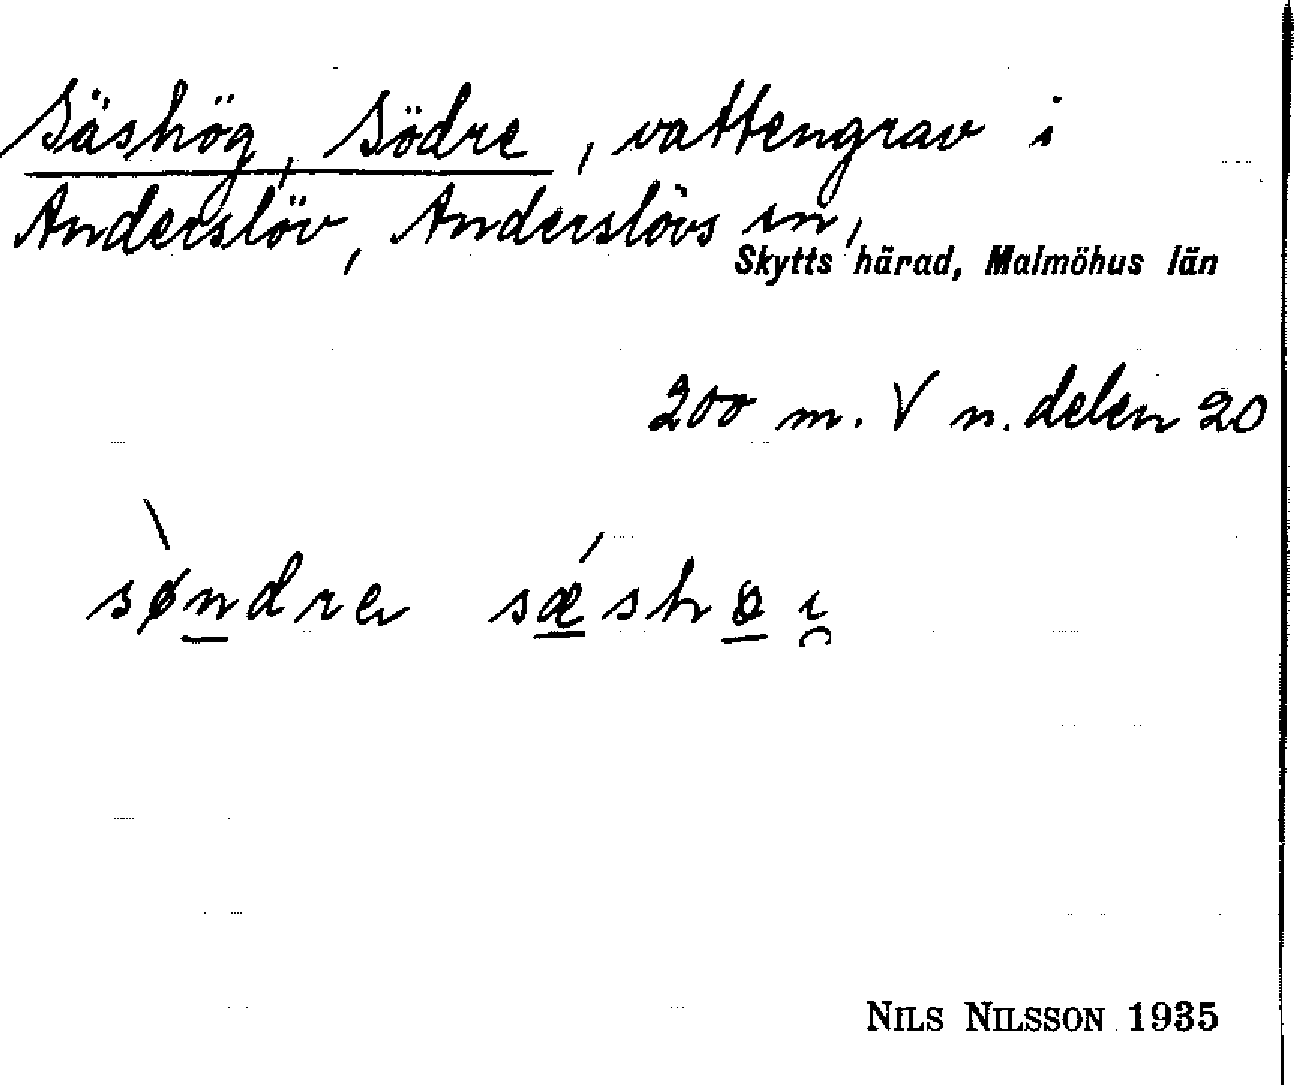 Säshög, Södre, vattengrav i
Anderslöv, Anderslövs sn,
Skytts härad, Malmöhus län
200 m. V n. delen 20
sø̀ndrə sǽshøi̯
NILS NILSSON 1935